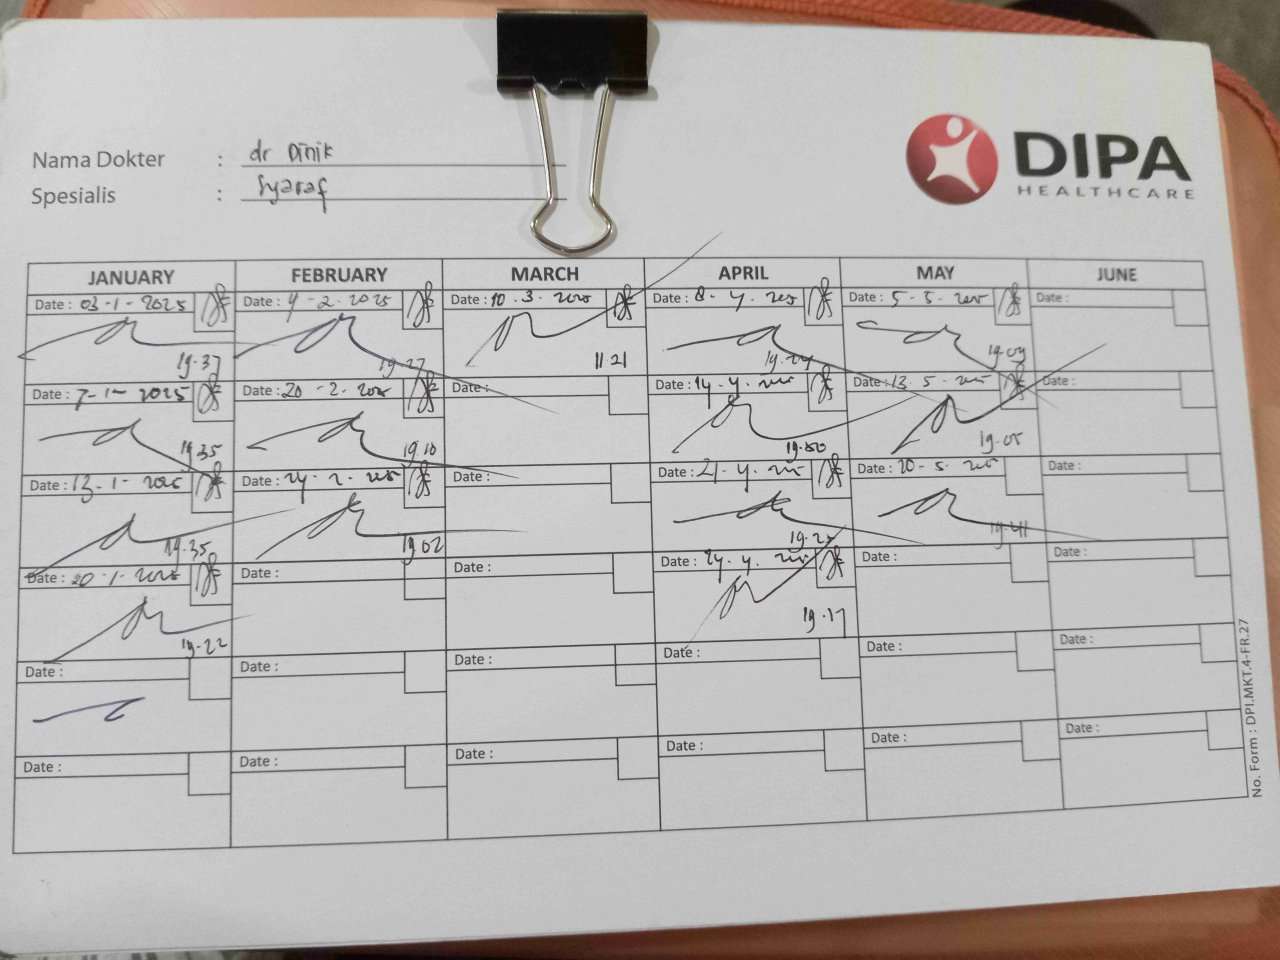 DIPA
HEALTHCARE
Nama Dokter : dr Dinik
Spesialis : Syaraf
JANUARY FEBRUARY MARCH APRIL MAY JUNE
Date : 03-1-2025 Date : 4-2-2025 Date : 10.3.2025 Date : 8-4.2025 Date : 5-5.2025 Date :
19.37 19.27 11.21 19.24 19.09
Date : 7-1-2025 Date : 20-2-2025 Date : Date : 14-4.2025 Date : 13.5-2025 Date :
19.35 19.10 19.50 19.05
Date : 13-1-2025 Date : 24-2-2025 Date : Date : 21-4.2025 Date : 20-5.2025 Date :
19.35 19.02 19.25 19.41
Date : 20-1-2025 Date : Date : Date : 24.4.2025 Date : Date :
19.22 19.17
Date : Date : Date : Date : Date : Date :
Date : Date : Date : Date : Date : Date :
No. Form : DPI.MKT.4-FR.27